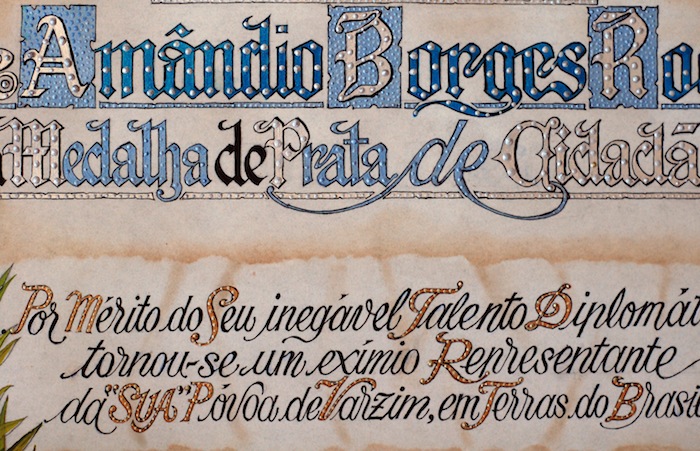 Amândio Borges Ro
Medalha de Prata de Cidadã
Por Mérito do Seu inegável Talento Diplomát
tornou-se um exímio Representante
da "SUA" Póvoa de Varzim, em Terras do Brasi